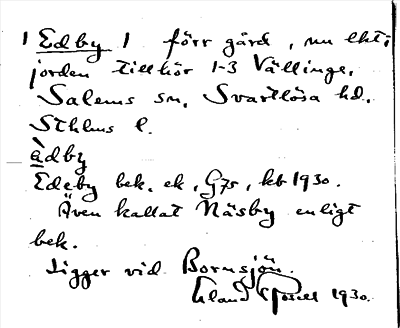 1 Edby 1 förr gård, nu lht;
jorden tillhör 1-3 Vällinge,
Salems sn, Svartlösa hd.
Sthlms l.
àdby
Edeby bek. ek, G75, kb 1930.
Även kallat Näsby enligt
bek.
Ligger vid Bornsjön.
Erland 1930.